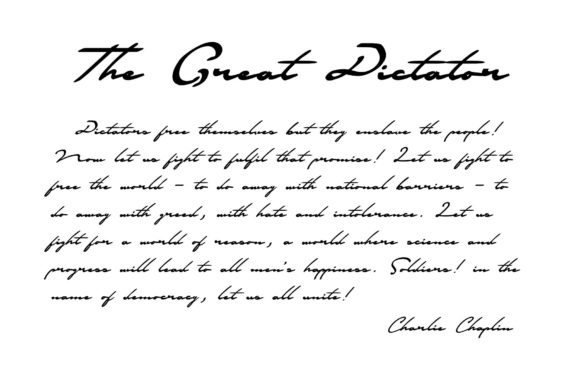 The Great Dictator
Dictators free themselves but they enslave the people!
Now let us fight to fulfil that promise! Let us fight to
free the world - to do away with national barriers - to
do away with greed, with hate and intolerance. Let us
fight for a world of reason, a world where science and
progress will lead to all men's happiness. Soldiers! in the
name of democracy, let us all unite!
Charlie Chaplin